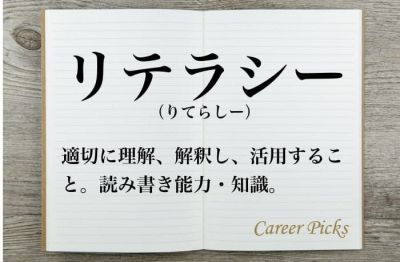 リテラシー
(りてらしー)
適切に理解、解釈し、活用するこ
と。読み書き能力・知識。
Career Picks